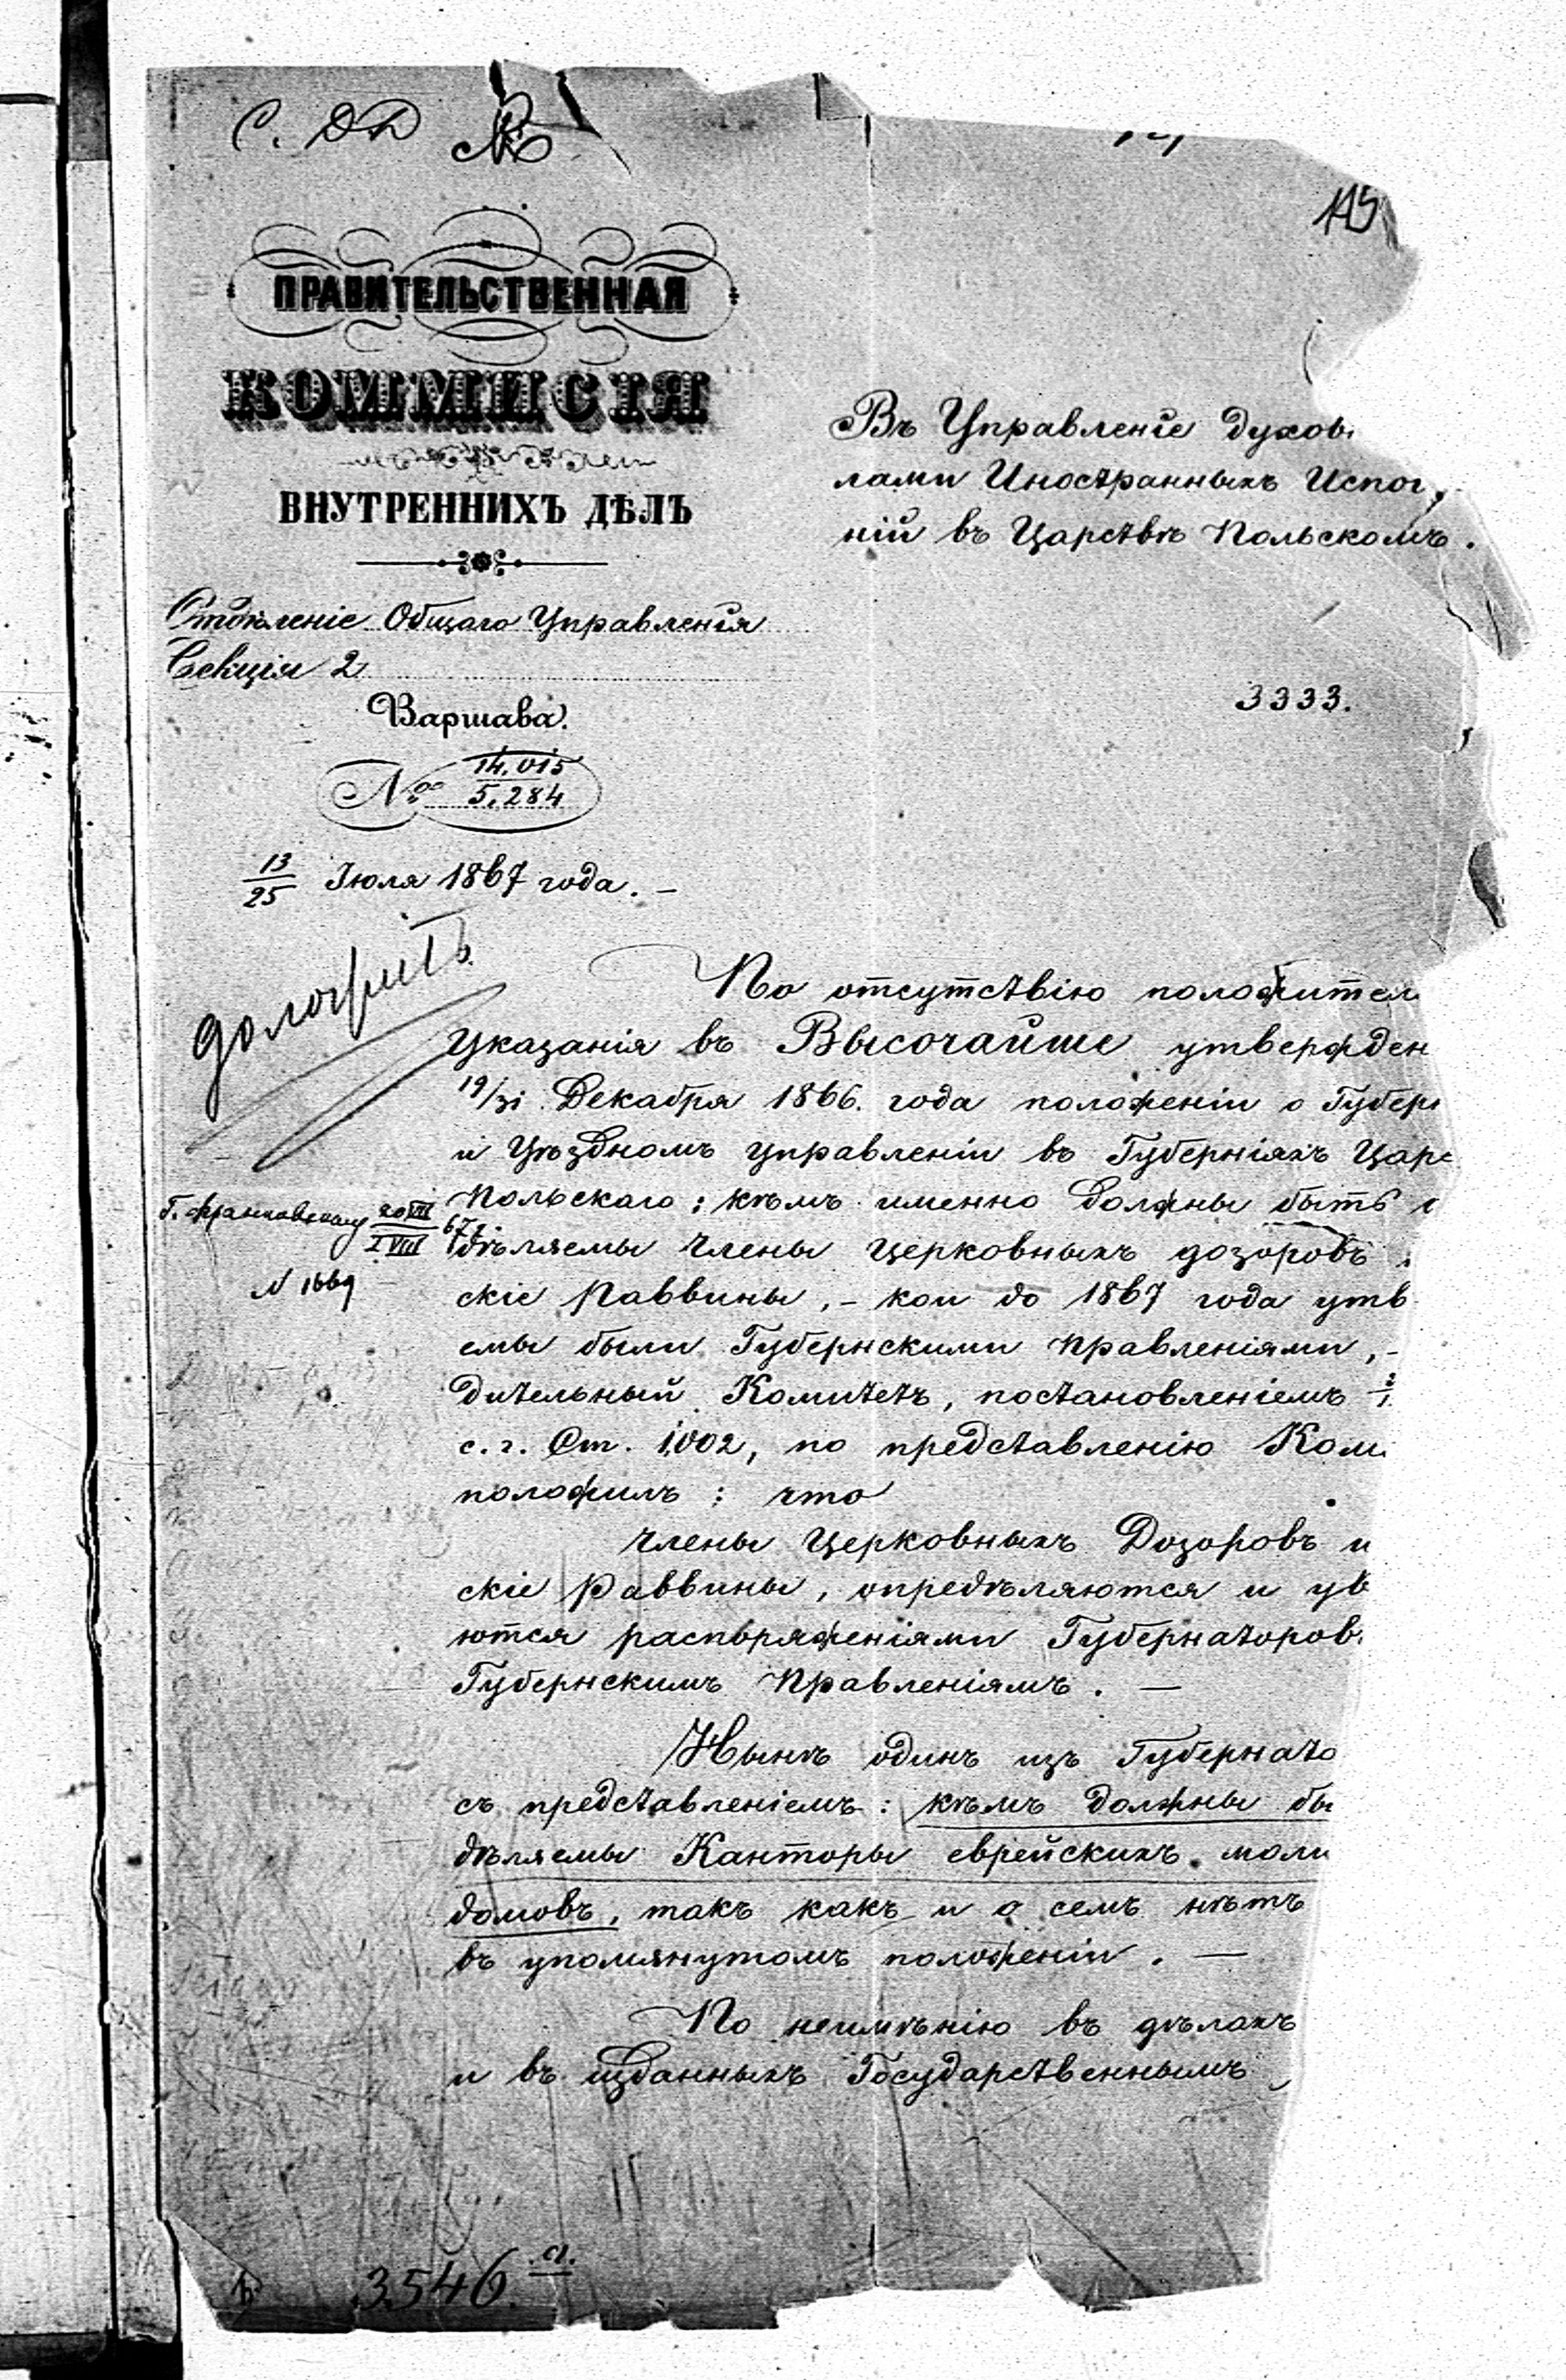 С. Д Д
115
ПРАВИТЕЛЬСТВЕННАЯ
КОММИСІЯ
ВНУТРЕННИХЪ ДѢЛЪ
Въ Управленіе духов
лами Иностранныхъ Испо
ній въ Царствѣ Польскомъ.
Отдѣленіе Общаго Управленія
Секція 2
3333.
Варшава.
№ 14.015
5.284
13/25 Іюля 1867 года. —
доложить
По отсутствію положител
указанія въ Высочайше утвержден
19/31 Декабря 1866. года положеніи о Губерн
и Уѣздномъ управленіи въ Губерніяхъ Царс
Польскаго: кѣмъ именно должны быть
дѣляемы члены церковныхъ дозоровъ
№ 1669
скіе Раввины, - кои до 1867 года утв
емы были Губернскими Правленіями, -
дительный Комитетъ, постановленіемъ
с. г. Ст. 1,002, по представленію Ком
положилъ: что
члены Церковныхъ Дозоровъ и
скіе Раввины, опредѣляются и ув
ются распоряженіями Губернаторов
Губернскимъ Правленіямъ. —
Нынѣ одинъ изъ Губернато
съ представленіемъ: кѣмъ должны бы
дѣляемы Канторы еврейскихъ моли
домовъ, такъ какъ и о семъ нѣтъ
въ упомянутомъ положеніи. —
По неимѣнію въ дѣлахъ
и въ изданныхъ Государственнымъ
3546. а.